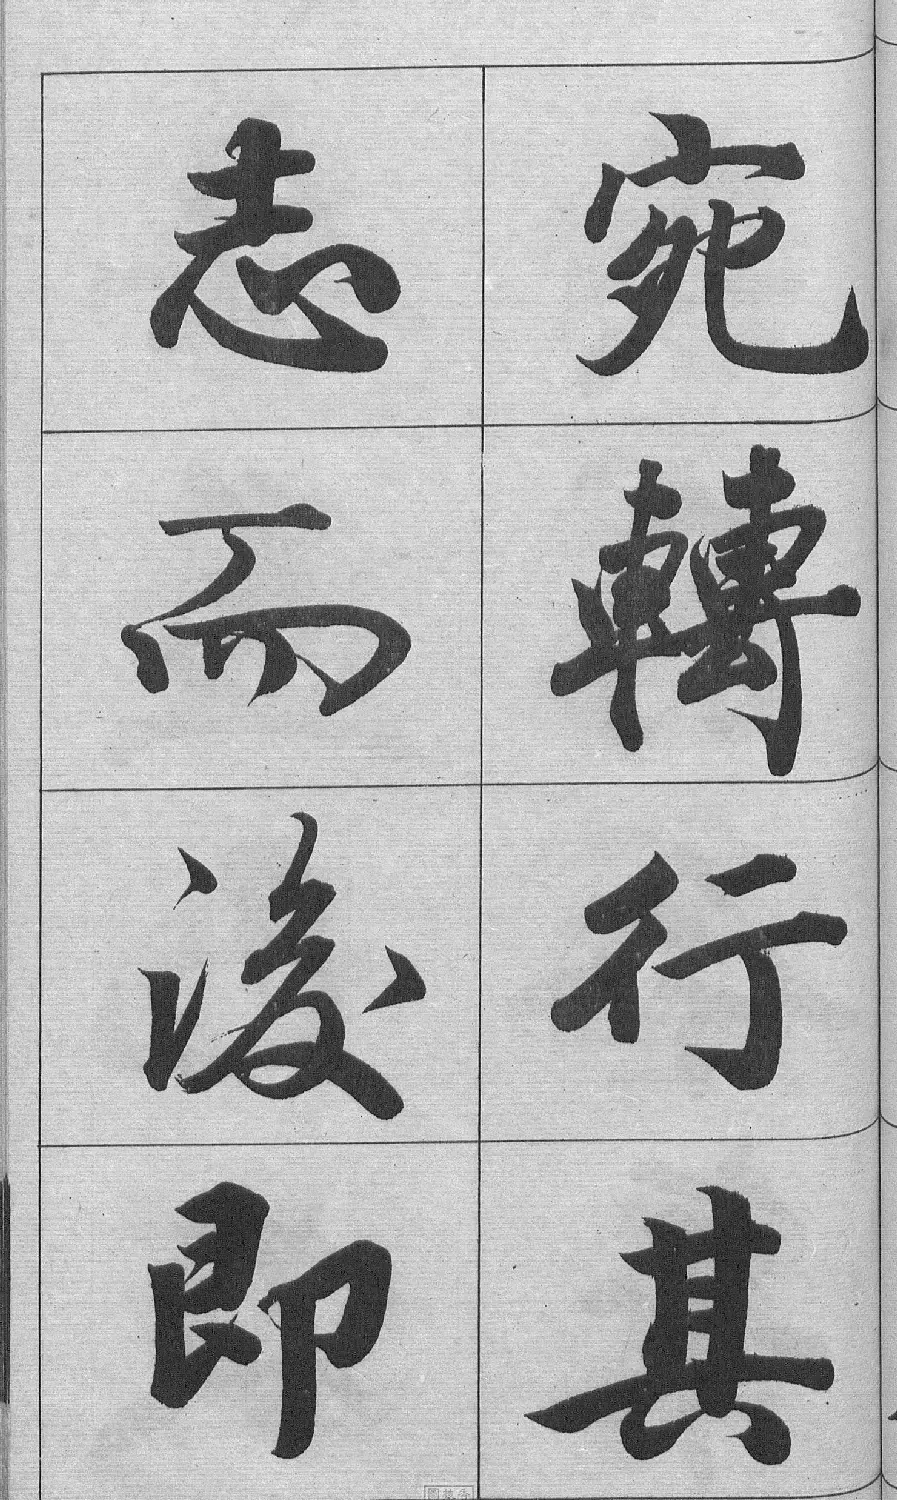 宛轉行其
志而後即